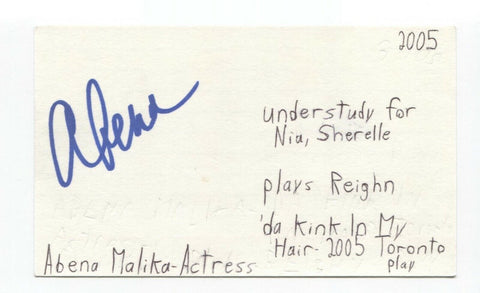 2005
Abena
understudy for
Nia, Sherelle
plays Reighn
'da Kink In My
Hair- 2005 Toronto
play
Abena Malika-Actress